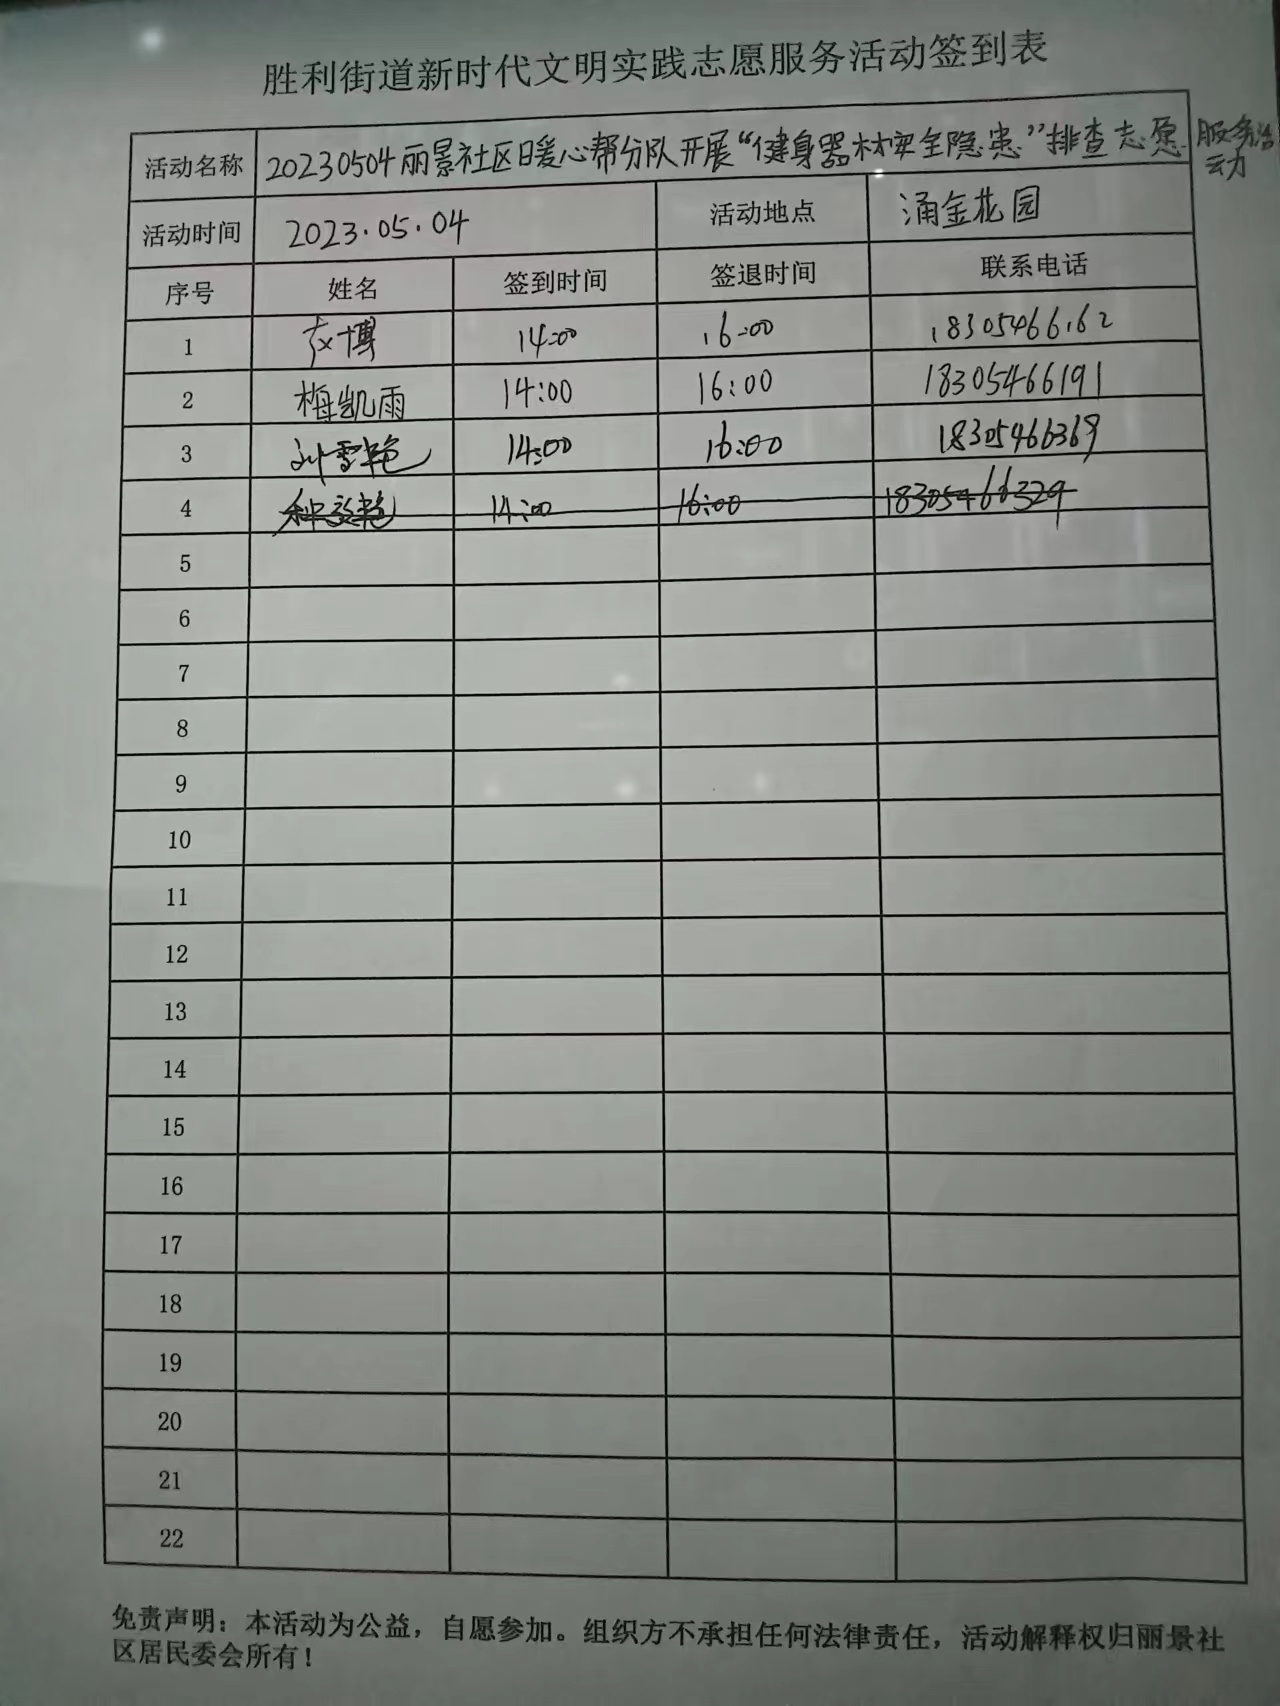 胜利街道新时代文明实践志愿服务活动签到表
活动名称 20230504丽景社区暖心帮分队开展“健身器材安全隐患”排查志愿服务活动
活动时间 2023.05.04 活动地点 涌金花园
序号 姓名 签到时间 签退时间 联系电话
1 博 14:00 16:00 18305466162
2 梅凯雨 14:00 16:00 18305466191
3 刘雪艳 14:00 16:00 18305466369
4 14:00 16:00 18305466329
5
6
7
8
9
10
11
12
13
14
15
16
17
18
19
20
21
22
免责声明：本活动为公益，自愿参加。组织方不承担任何法律责任，活动解释权归丽景社
区居民委会所有！